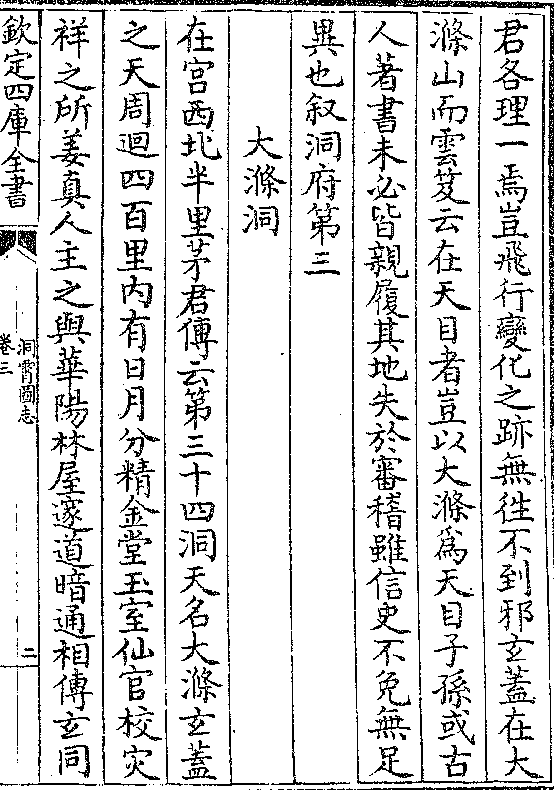 君各理一焉豈飛行變化之跡無徃不到邪玄蓋在大
滌山而雲笈云在天目者豈以大滌爲天目子孫或古
人著書未必皆親履其地失於審稽雖信史不免無足
異也叙洞府第三
大滌洞
在宫西北半里茅君傳云第三十四洞天名大滌玄蓋
之天周迴四百里内有日月分精金堂玉室仙官校灾
祥之所姜真人主之與華陽林屋邃道暗通相傳玄同
欽定四庫全書
洞霄圖志
卷三
二